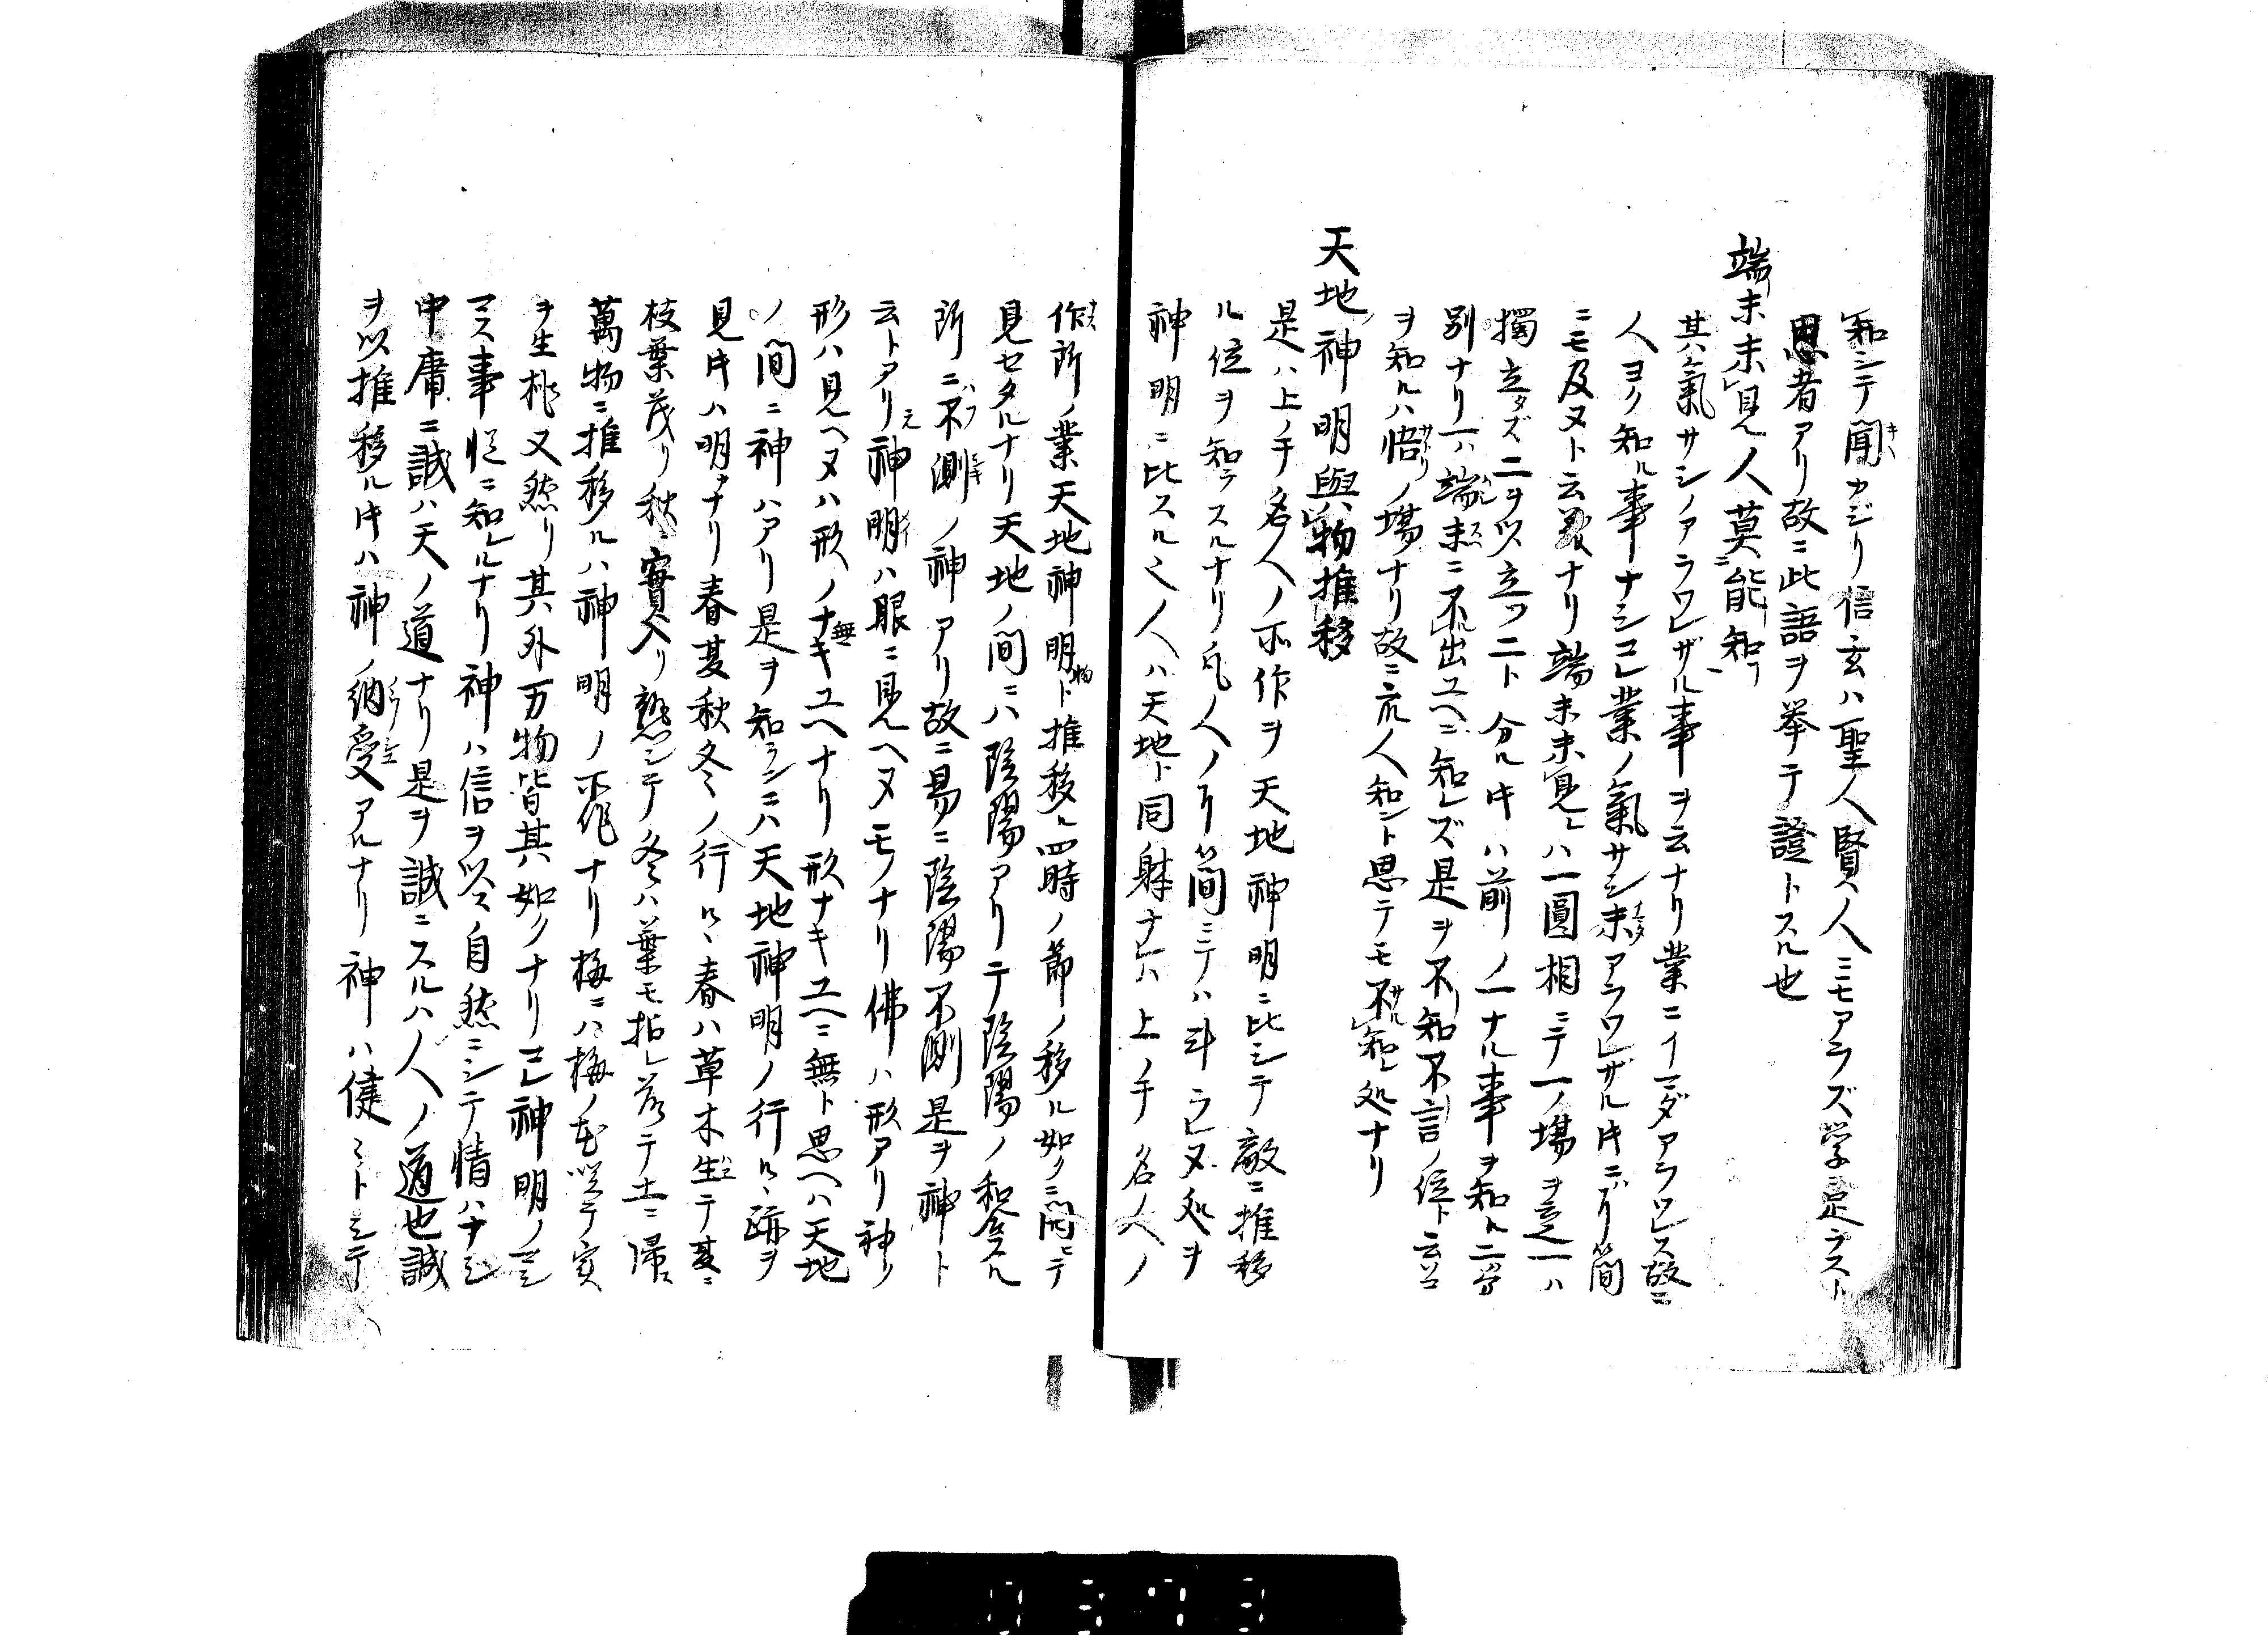 和シテ聞カジリ信玄ハ聖人賢人ニモアラズ学ニ足ラズト
思者アリ故ニ此語ヲ挙テ證トスル也
端末未見人莫能知
其氣サシノアラワレザル事ヲ云ナリ業ニイマダアラワレス故ニ
人ヨク知ル事ナシコレ業ノ氣サシ未アラワレザル
ニモ及ヌト云義ナリ端末未見レハ一圓相ニテ一ノ場ヲ
獨立タズ二ヲ以立ワ二ト分ル𪜈ハ前ノ一ナル事ヲ知ル二
別ナリ一ハ端末ニ不出ユヘニ知レズ是ヲ不知不言ノ位ト云
ヲ知ルハ悟リノ場ナリ故ニ凡人知ント思テモ不知処ナリ
天地神明與物推移
是ハ上ノ手名人ノ所作ヲ天地神明ニ比シテ敵ニ推移
ル位ヲ知ラスルナリ凡人ノ了簡ニテハ斗ラレヌ処ヲ
神明ニ比スル名人ハ天地ト同躰ナレハ上ノ手名人ノ
作所ノ業天地神明物ト推移ル四時ノ節ノ移ル如クニ
見セタルナリ天地ノ間ニハ陰陽アリテ陰陽ノ和合スル
所ニ不測ノ神アリ故ニ易ニ陰陽不測是ヲ神ト
云トアリ神明ハ眼ニ見ヘヌモノナリ佛ハ形アリ神ハ
形ハ見ヘヌハ形ノナキ無ユヘナリ形ナキユヘニ無ト思ヘハ天地
ノ間ニ神ハアリ是ヲ知ランニハ天地神明ノ行ハルヽ跡ヲ
見𪜈ハ明ナリ春夏秋冬ノ行ハルヽ春ハ草木生テ夏ニ
枝葉茂リ秋ハ實入リ熟シテ冬ハ葉モ枯レ落テ土ニ歸ル
萬物ニ推移ルハ神明ノ所作ナリ梅ニハ梅ノ花咲テ実
ヲ生桃又然リ其外万物皆其如クナリコレ神明ノマシ
マス事慥ニ知ルナリ神ハ信ヲ以ス自然ニシテ情ハナシ
中庸ニ誠ハ天ノ道ナリ是ヲ誠ニスルハ人ノ道也誠
ヲ以推移ル𪜈ハ神ノ納受アルナリ神ハ健ヽトシテ